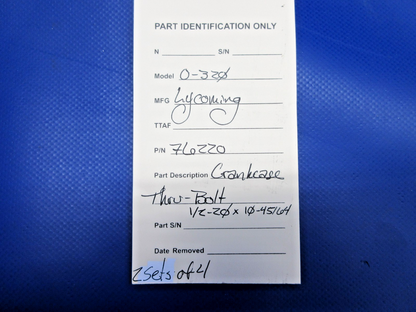 PART IDENTIFICATION ONLY
N S/N
Model O-320
MFG Lycoming
TTAF
P/N 76220
Part Description Crankcase
Thru-Bolt
1/2-20 x 10-45/64
Part S/N
Date Removed
2 Sets of 4